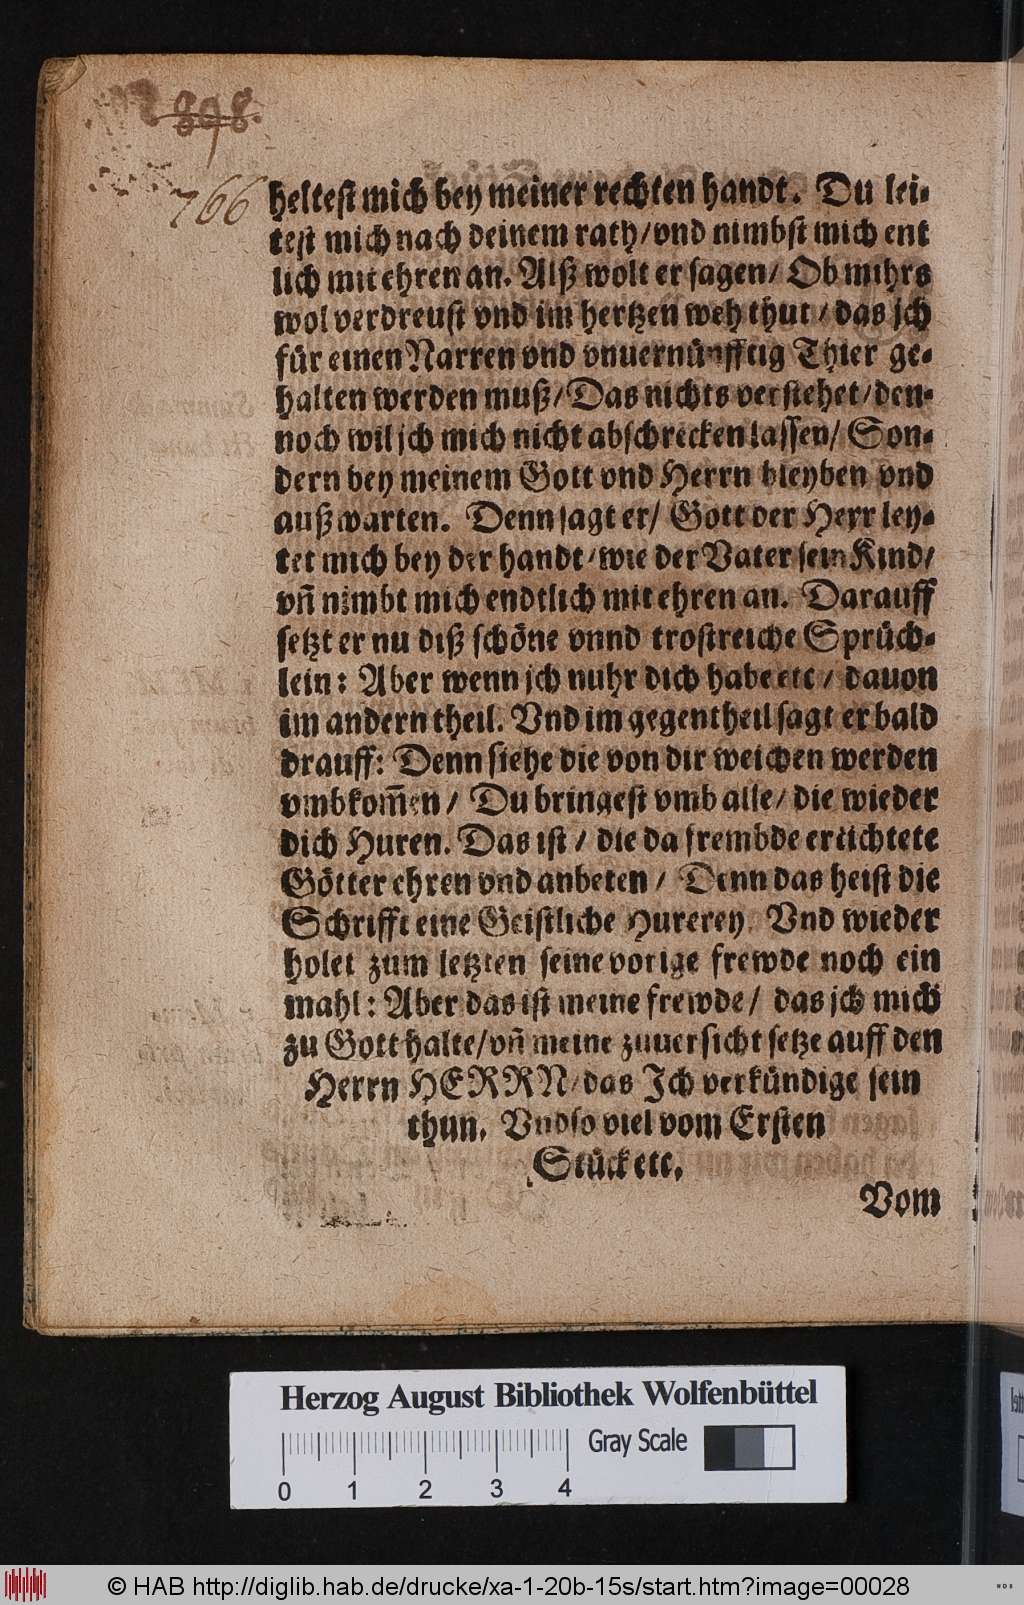 898.
766
heltest mich bey meiner rechten handt. Du lei-
test mich nach deinem rath/vnd nimbst mich ent
lich mit ehren an. Alß wolt er sagen/ Ob mihrs
wol verdreust vnd im hertzen weh thut/das jch
für einen Narren vnd vnuernünfftig Thier ge-
halten werden muß/Das nichts verstehet/den-
noch wil jch mich nicht abschrecken lassen/Son-
dern bey meinem Gott vnd Herrn bleyben vnd
auß warten. Denn sagt er/ Gott der Herr ley-
tet mich bey der handt/wie der Vater sein Kind/
vñ nimbt mich endtlich mit ehren an. Darauff
setzt er nu diß schöne vnnd trostreiche Sprüch-
lein: Aber wenn jch nuhr dich habe etc/ dauon
im andern theil. Vnd im gegentheil sagt er bald
drauff: Denn siehe die von dir weichen werden
vmbkom̃en/ Du bringest vmb alle/die wieder
dich Huren. Das ist/ die da frembde ertichtete
Götter ehren vnd anbeten/ Denn das heist die
Schrifft eine Geistliche Hurerey. Vnd wieder
holet zum letzten seine vorige frewde noch ein
mahl: Aber das ist meine frewde/ das jch mich
zu Gott halte/vñ meine zuuersicht setze auff den
Herrn HERRN/das Ich verkündige sein
thun. Vnd so viel vom Ersten
Stück etc.
Vom
Herzog August Bibliothek Wolfenbüttel
Gray Scale
0 1 2 3 4
© HAB http://diglib.hab.de/drucke/xa-1-20b-15s/start.htm?image=00028